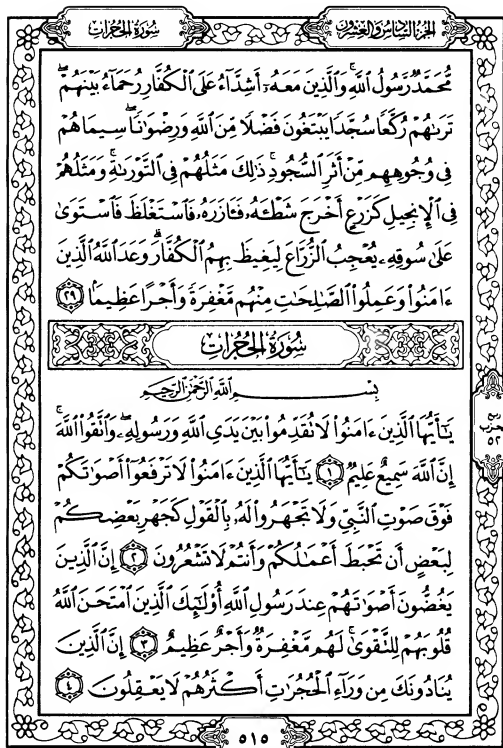 الجزء السادس والعشرون
سورة الحجرات
مُّحَمَّدٌ رَّسُولُ ٱللَّهِ ۚ وَٱلَّذِينَ مَعَهُۥٓ أَشِدَّآءُ عَلَى ٱلْكُفَّارِ رُحَمَآءُ بَيْنَهُمْ ۖ
تَرَىٰهُمْ رُكَّعًا سُجَّدًا يَبْتَغُونَ فَضْلًا مِّنَ ٱللَّهِ وَرِضْوَٰنًا ۖ سِيمَاهُمْ
فِى وُجُوهِهِم مِّنْ أَثَرِ ٱلسُّجُودِ ۚ ذَٰلِكَ مَثَلُهُمْ فِى ٱلتَّوْرَىٰةِ ۚ وَمَثَلُهُمْ
فِى ٱلْإِنجِيلِ كَزَرْعٍ أَخْرَجَ شَطْـَٔهُۥ فَـَٔازَرَهُۥ فَٱسْتَغْلَظَ فَٱسْتَوَىٰ
عَلَىٰ سُوقِهِۦ يُعْجِبُ ٱلزُّرَّاعَ لِيَغِيظَ بِهِمُ ٱلْكُفَّارَ ۗ وَعَدَ ٱللَّهُ ٱلَّذِينَ
ءَامَنُوا۟ وَعَمِلُوا۟ ٱلصَّٰلِحَٰتِ مِنْهُم مَّغْفِرَةً وَأَجْرًا عَظِيمًۢا ٢٩
سُورَةُ الحُجُرَات
بِسْمِ ٱللَّهِ ٱلرَّحْمَٰنِ ٱلرَّحِيمِ
يَٰٓأَيُّهَا ٱلَّذِينَ ءَامَنُوا۟ لَا تُقَدِّمُوا۟ بَيْنَ يَدَىِ ٱللَّهِ وَرَسُولِهِۦ ۖ وَٱتَّقُوا۟ ٱللَّهَ ۚ
إِنَّ ٱللَّهَ سَمِيعٌ عَلِيمٌ ١ يَٰٓأَيُّهَا ٱلَّذِينَ ءَامَنُوا۟ لَا تَرْفَعُوٓا۟ أَصْوَٰتَكُمْ
فَوْقَ صَوْتِ ٱلنَّبِىِّ وَلَا تَجْهَرُوا۟ لَهُۥ بِٱلْقَوْلِ كَجَهْرِ بَعْضِكُمْ
لِبَعْضٍ أَن تَحْبَطَ أَعْمَٰلُكُمْ وَأَنتُمْ لَا تَشْعُرُونَ ٢ إِنَّ ٱلَّذِينَ
يَغُضُّونَ أَصْوَٰتَهُمْ عِندَ رَسُولِ ٱللَّهِ أُو۟لَٰٓئِكَ ٱلَّذِينَ ٱمْتَحَنَ ٱللَّهُ
قُلُوبَهُمْ لِلتَّقْوَىٰ ۚ لَهُم مَّغْفِرَةٌ وَأَجْرٌ عَظِيمٌ ٣ إِنَّ ٱلَّذِينَ
يُنَادُونَكَ مِن وَرَآءِ ٱلْحُجُرَٰتِ أَكْثَرُهُمْ لَا يَعْقِلُونَ ٤
حزب
٥٢
٥١٥